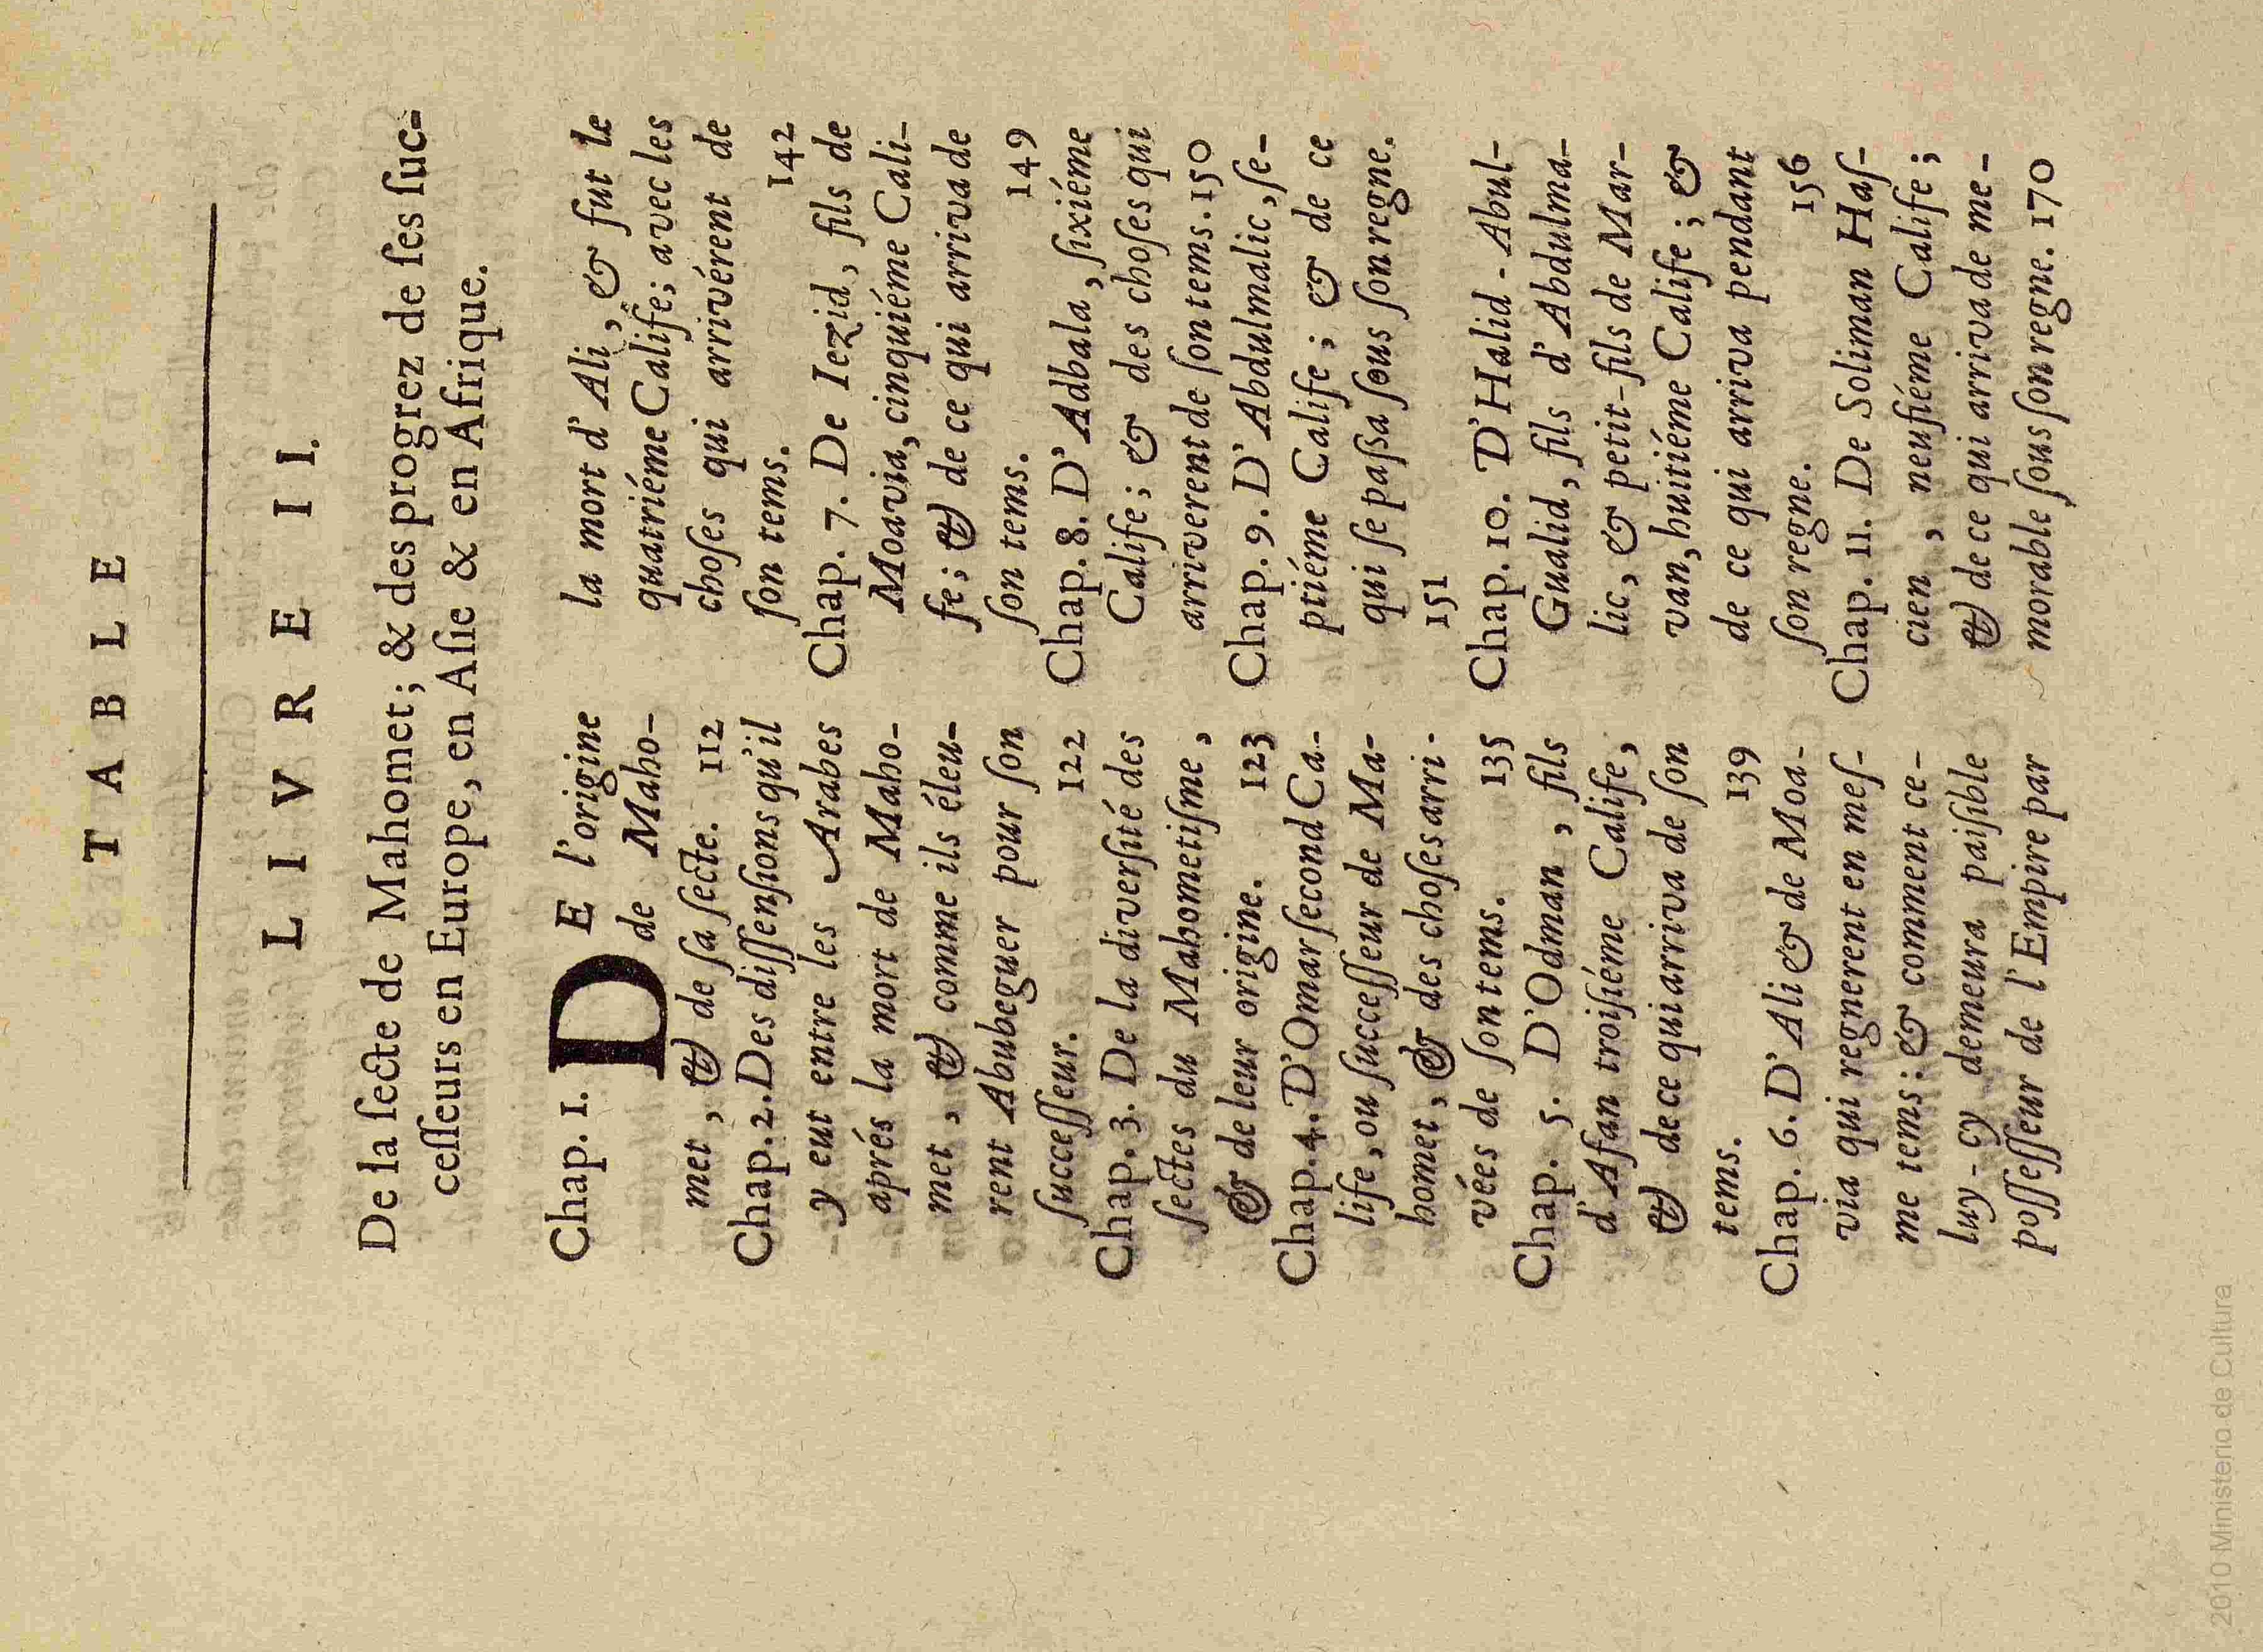 TABLE
LIVRE II.
De la ſecte de Mahomet; & des progrez de ſes ſuc-
ceſſeurs en Europe, en Aſie & en Afrique.
Chap. 1. DE l'origine
de Maho-
met, & de ſa ſecte. 112
Chap. 2. Des diſſenſions qu'il
y eut entre les Arabes
aprés la mort de Maho-
met, & comme ils éleu-
rent Abubeguer pour ſon
ſucceſſeur. 122
Chap. 3. De la diverſité des
ſectes du Mahometiſme,
& de leur origine. 123
Chap. 4. D'Omar ſecond Ca-
life, ou ſucceſſeur de Ma-
homet, & des choſes arri-
vées de ſon tems. 135
Chap. 5. D'Odman, fils
d'Afan troiſiéme Calife,
& de ce qui arriva de ſon
tems. 139
Chap. 6. D'Ali & de Moa-
via qui regnerent en meſ-
me tems: & comment ce-
luy-cy demeura paiſible
poſſeſſeur de l'Empire par
la mort d'Ali, & fut le
quatriéme Calife; avec les
choſes qui arrivérent de
ſon tems. 142
Chap. 7. De Iezid, fils de
Moavia, cinquiéme Cali-
fe; & de ce qui arriva de
ſon tems. 149
Chap. 8. D'Adbala, ſixiéme
Calife; & des choſes qui
arriverent de ſon tems. 150
Chap. 9. D'Abdulmalic, ſe-
ptiéme Calife; & de ce
qui ſe paſſa ſous ſon regne.
151
Chap. 10. D'Halid-Abul-
Gualid, fils d'Abdulma-
lic, & petit-fils de Mar-
van, huitiéme Calife; &
de ce qui arriva pendant
ſon regne. 156
Chap. 11. De Soliman Haſ-
cien, neufiéme Calife;
& de ce qui arriva de me-
morable ſous ſon regne. 170
2010 Ministerio de Cultura